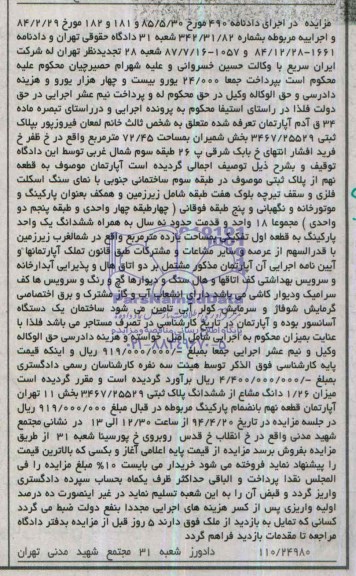 مزایده در اجرای دادنامه ۴۹۰ مورخ ۸۵/۵/۳۰ و ۱۸۱ و ۱۸۲ مورخ ۸۴/۲/۲۹
و اجراییه مربوطه بشماره ۳۴۲/۳۱/۸۲ شعبه ۳۱ دادگاه حقوقی تهران و دادنامه
۱۶۶۱-۸۴/۱۲/۲۸ و ۱۰۵۷-۸۷/۷/۱۶ شعبه ۲۸ تجدیدنظر تهران له شرکت
ایران سریع با وکالت حسین خسروانی و علیه شهرام حصیرچیان محکوم علیه
محکوم است بپرداخت جمعا ۲۴/۰۰۰ یورو بیست و چهار هزار یورو و هزینه
دادرسی و حق الوکاله وکیل در حق محکوم له و پرداخت نیم عشر اجرایی در حق
دولت فلذا در راستای استیفا محکوم به پرونده اجرایی و درراستای تبصره ماده
۳۴ ق آدم آپارتمان تعرفه شده متعلق به شخص ثالث خانم لمعان فیروزپور بپلاک
ثبتی ۳۴۶۷/۲۵۵۲۹ بخش شمیران بمساحت ۷۲/۴۵ مترمربع واقع در خ ظفر خ
فرید افشار انتهای خ بابک شرقی پ ۲۶ طبقه سوم شمال غربی توسط این دادگاه
توقیف و بشرح ذیل توصیف اجمالی گردیده است آپارتمان موصوف به قطعه
نهم از پلاک ثبتی موصوف در طبقه سوم ساختمانی جنوبی با نمای سنگ اسکلت
فلزی و سقف تیرچه بلوک هفت طبقه شامل زیرزمین و همکف بعنوان پارکینگ و
موتورخانه و نگهبانی و پنج طبقه فوقانی ( چهارطبقه چهار واحدی و طبقه پنجم دو
واحدی ) مجموعا ۱۸ واحد و قدمت حدود ده سال به همراه ششدانگ یک واحد
پارکینگ به قطعه اول تفکیکی بمساحت یازده مترمربع واقع در شمالغرب زیرزمین
با قدرالسهم از عرصه و سایر مشاعات و مشترکات طبق قانون تملک آپارتمانها و
آیین نامه اجرایی آن آپارتمان مذکور مشتمل بر دو اتاق هال و پذیرایی آبدارخانه
و سرویس بهداشتی کف اتاقها و هال سنگ و دیوارها گچ و رنگ و سرویس ها کف
سرامیک ودیوار کاشی می باشد دارای انشعاب آب و گاز مشترک و برق اختصاصی
گرمایش شوفاژ و سرمایش کولر آبی تامین می شود ساختمان یک دستگاه
آسانسور بوده و آپارتمان در تاریخ کارشناسی در تصرف مستاجر می باشد فلذا با
عنایت بمیزان محکوم به اجرایی شامل اصل خواسته و هزینه دادرسی حق الوکاله
وکیل و نیم عشر اجرایی جمعا بمبلغ -/۹۱۹/۰۰۰/۰۰۰ ریال و اینکه قیمت
پایه کارشناسی فوق الذکر توسط هیئت سه نفره کارشناسان رسمی دادگستری
بمبلغ -/۴/۴۰۰/۰۰۰/۰۰۰ ریال برآورد گردیده است و مقرر گردیده است
میزان ۱/۲۶ دانگ مشاع از ششدانگ پلاک ثبتی ۳۴۶۷/۲۵۵۲۹ بخش ۱۱ تهران
آپارتمان قطعه نهم بانضمام پارکینگ مربوطه در قبال مبلغ ۹۱۹/۰۰۰/۰۰۰ ریال
در جلسه مزایده در تاریخ ۹۴/۴/۲۰ از ساعت ۱۲/۳۰ الی ۱۳ در نشانی مجتمع
شهید مدنی واقع در خ انقلاب خ قدس روبروی خ پورسینا شعبه ۳۱ از طریق
مزایده بفروش برسد مزایده از قیمت پایه اعلامی آغاز و بکسی که بالاترین قیمت
را پیشنهاد نماید فروخته می شود خریدار می بایست ۱۰% مبلغ مزایده را فی
المجلس نقدا پرداخت و الباقی حداکثر ظرف یکماه بحساب سپرده دادگستری
واریز گردد و قبض آن را به این شعبه تسلیم نماید در غیر اینصورت ده درصد
اولیه واریزی پس از کسر هزینه های اجرایی مجددا بنفع دولت ضبط می گردد
کسانی که تمایل به بازدید از ملک فوق دارند ۵ روز قبل از مزایده بدفتر دادگاه
مراجعه تا مقدمات بازدید فراهم گردد
۱۱۰/۲۴۹۸۰ دادورز شعبه ۳۱ مجتمع شهید مدنی تهران